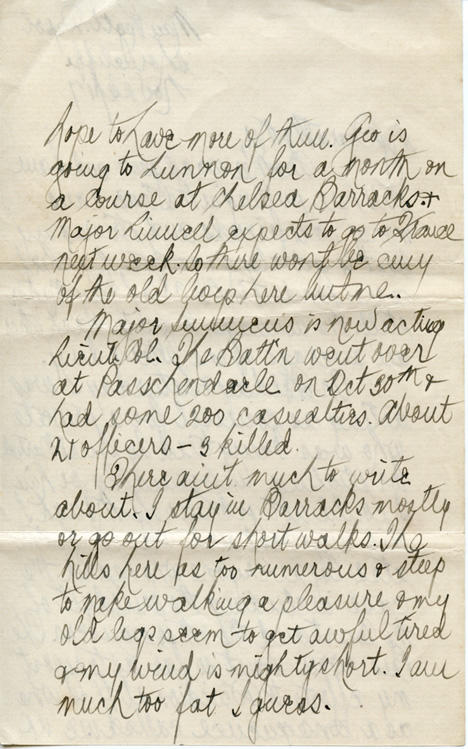 hope to have more of them. Geo is
going to Lunnon for a month on
a course at Chelsea Barracks. &
Major expects to go to France
next week. So there won't be any
of the old boys here but me.
Major is now acting
Lieut. Col. The Batt'n went over
at Passchendaele on Oct 30th &
had some 200 casualties. About
21 officers - 3 killed.
There ain't much to write
about. I stay in Barracks mostly
or go out for short walks. The
hills here as too numerous & steep
to make walking a pleasure & my
old legs seem to get awful tired
& my wind is mighty short. I am
much too fat I guess.